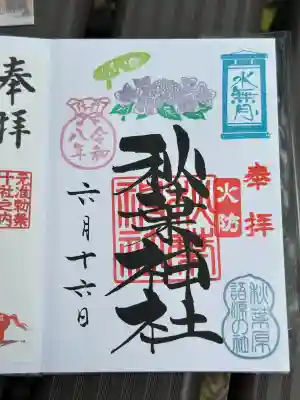 水無月
奉拝
火防
秋葉神社
秋葉神社
令和八年
六月十六日
秋葉原
語源の社
奉拝
元准勅祭
十社之内